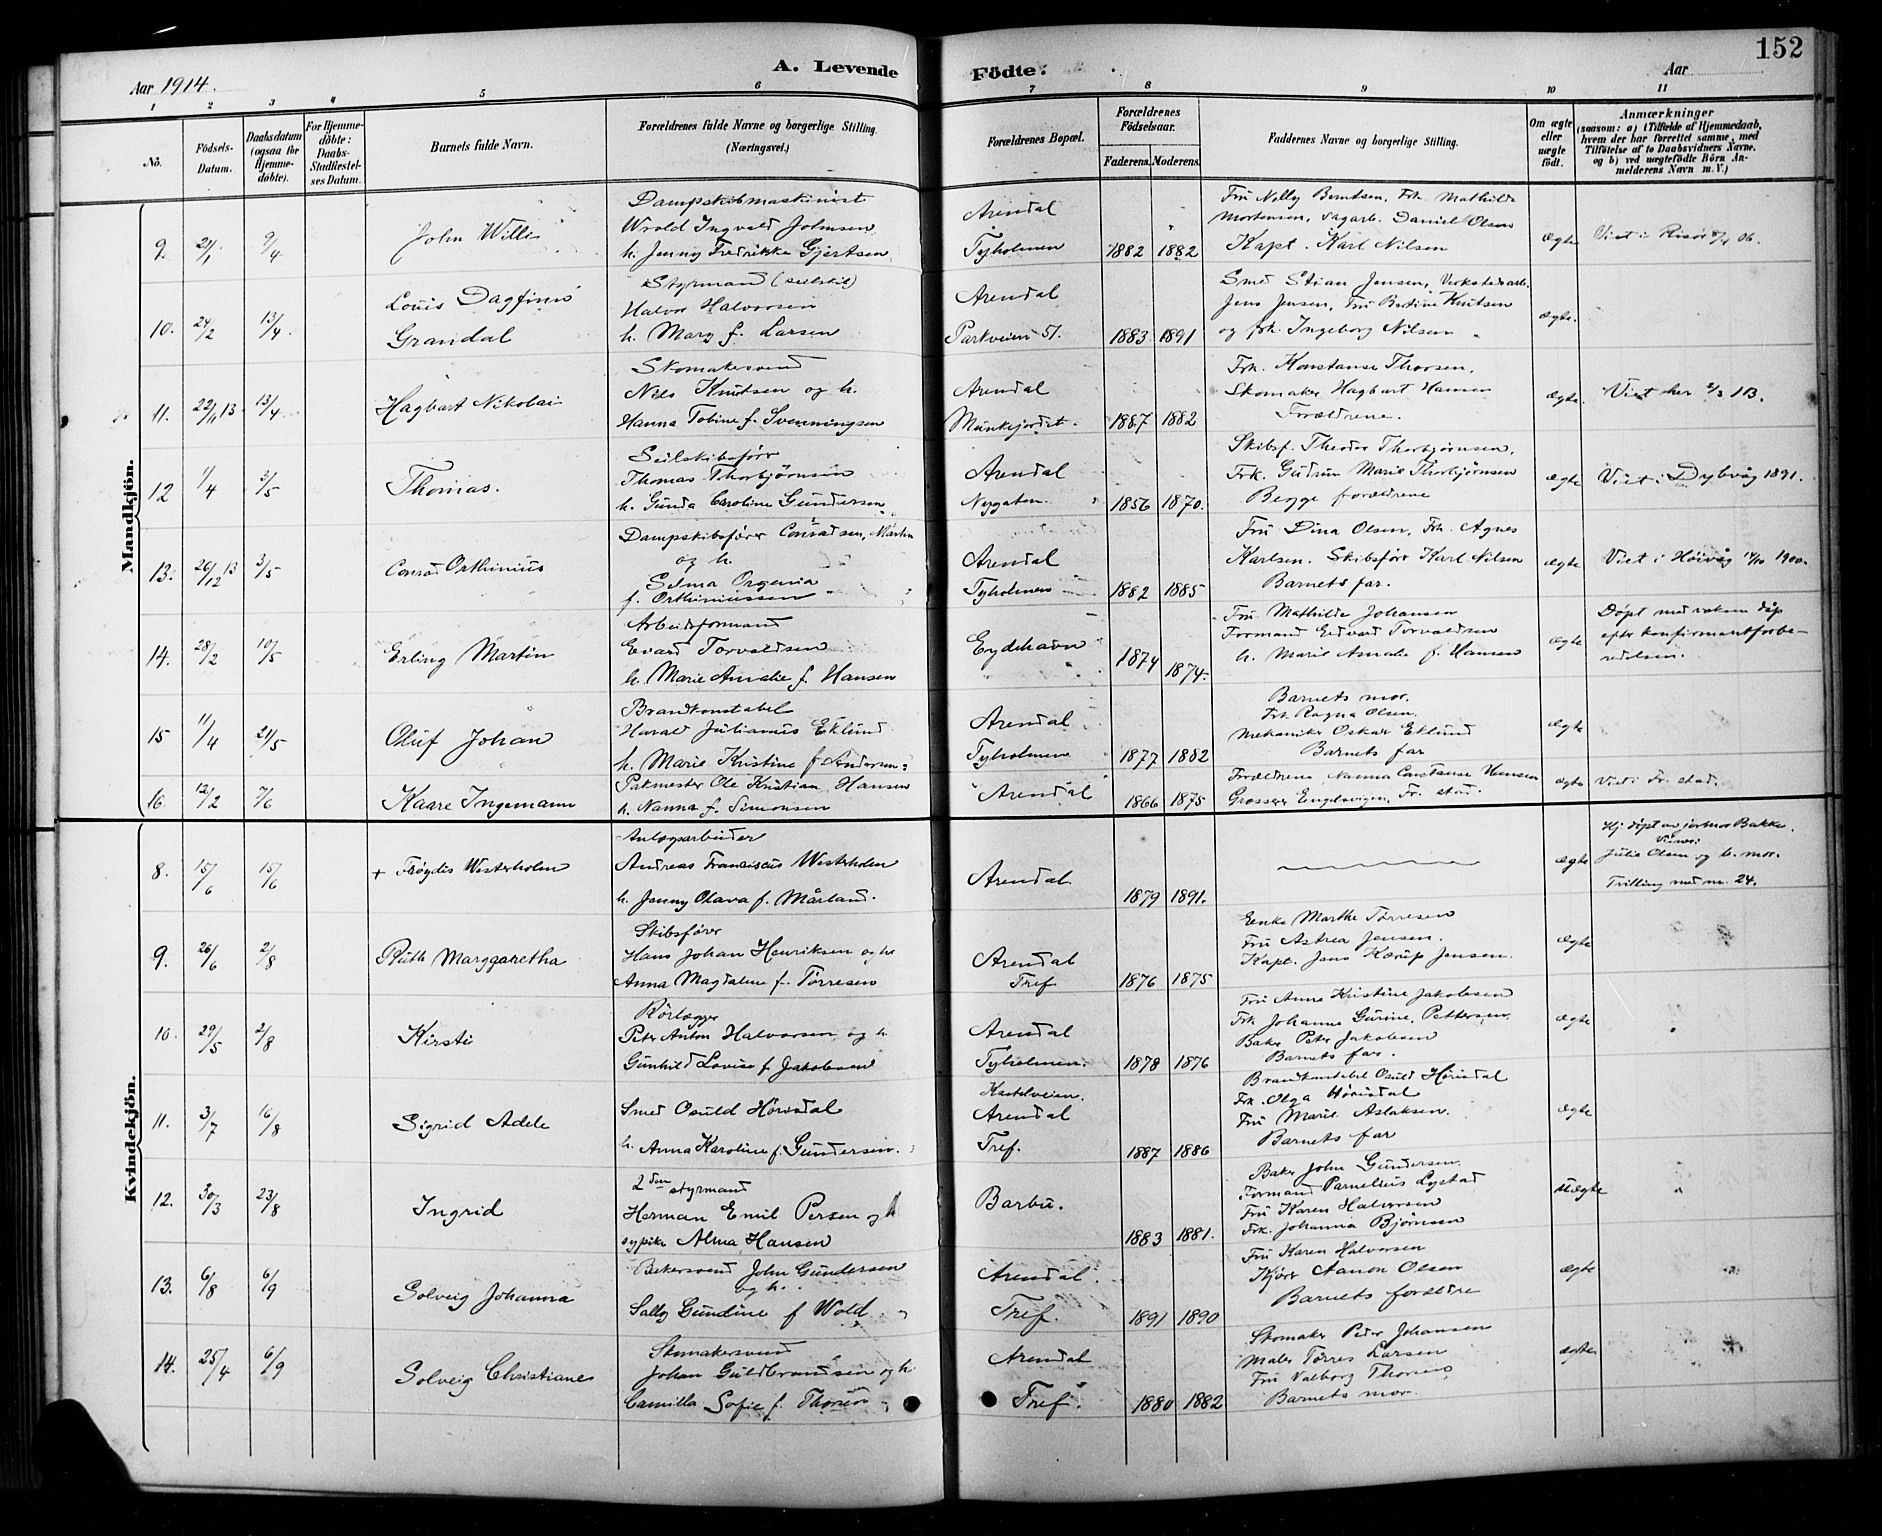 152
Aar 1914.
A. Levende Födte.
Aar
1 2 3 4 5 6 7 8 9 10 11
No.
Födsels-Datum.
Daabsdatum (ogsaa för Hjemme-döbte).
For Hjemme-döbte: Daabs-Stadfæstel-ses Datum.
Barnets fulde Navn.
Forældrenes fulde Navne og borgerlige Stilling. (Næringsvei.)
Forældrenes Bopæl.
Forældrenes Födselsaar.
Faderens. Moderens.
Faddernes Navne og borgerlige Stilling.
Om ægte eller uægte födt.
Anmærkninger
(saasom: a) i Tilfælde af Hjemmedaab, hvem der har forrettet samme, med Tilföielse af to Daabsvidners Navne. og b) ved uægtefödte Börn An-melderens Navn m. V.)
Mandkjön.
9. 21/1 9/4 John Willi
Dampskibmaskinist
Wrold Ingvald Johnsen
h. Jenny Fredrikke Gjertsen
Arendal
Tyholmen 1882 1882
Fru Nelly Berntsen, Frk. Mathilde
Mortensen, Sagarb. Daniel Olsen
Kapt. Karl Nilsen
ægte Viet i Risör 06.
10. 24/2 13/4 Louis Dagfinn
Grandal
Styrmand (seilskib)
Halvor Halvorsen
h. Mary f. Larsen
Arendal
Parkveien 51. 1883 1891
Smed Stian Jensen, Verkstedsarb.
Jens Jensen, Fru Bertine Knutsen
og frk. Ingeborg Nilsen
ægte.
11. 22/11 13 13/4 Hagbart Nikolai
Skomakersvend
Nils Knutsen og h.
Hanna Tobine f. Svenningsen
Arendal
Munkejordet. 1887 1882
Frk. Konstanse Thorsen.
Skomaker Hagbart Hansen
Forældrene.
ægte. Viet her 2/3 13.
12 1/4 3/5 Thomas.
Seilskibsfører
Thomas Thorbjørnsen
h. Gunda Caroline Gundersen
Arendal
Nygaten. 1856 1870.
Skibsf. Theodor Thorbjørnsen,
Frk. Gudrun Marie Thorbjørnsen
Begge forældrene
ægte Viet i Dybvåg 1891.
13. 26/12 13 3/5 Conrad Orthinius
Dampskibsfører Conradsen, Martin
og h.
Selma Orgenia
f. Orthiniussen
Arendal
Tyholmen 1882 1885
Fru Dina Olsen, Frk. Agnes
Karlsen. Skibsfør Karl Nilsen
Barnets far.
ægte Viet i Høivåg 1900.
14. 28/2 10/5 Erling Martin
Arbeidsformand
Evard Torvaldsen
h. Marie Amalie f. Hansen
Eydehavn 1874 1874.
Fru Mathilde Johansen
Formand Edvard Torvaldsen
h. Marie Amalie f. Hansen
ægte Døpt med voksen dåp
efter konfirmantforbe-
redelsen.
15 11/4 21/5 Oluf Johan
Brandkonstabel
Harald Julianius Eklund
h. Marie Kristine f. Andersen
Arendal
Tyholmen 1877 1882
Barnets mor.
Frk. Ragna Olsen.
Mekaniker Oskar Eklund
Barnets far
ægte
16. 12/2 7/6 Kaare Ingemann
Pakmester Ole Kristian Hansen
h. Nanna f. Simonsen
Arendal 1866 1875
Forældrene Nanna Constanse Hansen
Grosserer Engelsvigen, Fr. stad.
ægte Viet i Fr. stad.
Kvindekjön.
8. 15/6 15/6 + Frøydis Westerholm
Anlægsarbeider
Andreas Franciscus Westerholm
h. Jenny Olava f. Mårland.
Arendal 1879 1891.
ægte Hj. døpt av jormor Bakke.
Julie Olsen og b. mor.
Trilling med nr. 24.
9. 26/6 2/8 Ruth Marggaretha
Skibsfører
Hans Johan Henriksen og h.
Anna Magdalene f. Tørresen
Arendal
Tref. 1876 1875
Enke Marthe Tørresen
Fru Astrea Jensen.
Kapt. Jens Kærup Jensen.
ægte
10. 29/5 2/8 Kirsti
Rörlægger
Peter Anton Halvorsen og h.
Gunhild Lovise f. Jakobsen
Arendal
Tyholmen. 1878 1876
Fru Anne Kristine Jakobsen
Frk Johanne Gurine Pettersen
Baker Peter Jakobsen
Barnets far.
ægte
11. 3/7 16/8 Sigrid Adele
Smed Osuld Hörisdal
h. Anna Karoline f. Gundersen.
Kastelveien.
Arendal
Tref. 1887 1886
Brandkonstabel Osuld Hörisdal
Frk. Olga Hörisdal
Fru Marie Aslaksen.
Barnets far
ægte
12. 30/3 23/8 Ingrid
2den styrmand
Herman Emil Persen og
sypike Alma Hansen
Barbu. 1883 1881.
Baker John Gundersen
Formand Parnelius Lystad
Fru Karen Halvorsen
Frk. Johanna Bjørnsen
uægte
13. 6/8 6/9 Solveig Johanna
Bakersvend John Gundersen
og h.
Sally Gundine f. Wold
Arendal.
Tref. 1891 1890
Fru Karen Halvorsen
Kjört Aanon Olsen
Barnets forældre
ægte
14. 25/4 6/9 Solveig Christiane
Skomakersvend
Johan Guldbrandsen og h
Camilla Sofie f. Thorsen
Arendal
Tref. 1880 1882
Skomaker Peder Johansen
Maler Tørres Larsen
Fru Valborg Thorsen
Barnets mor.
ægte